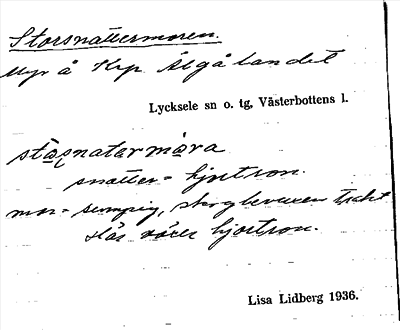 Storsnattermoren.
Myr å Krp Älgålandet
Lycksele sn o. tg, Västerbottens l.
stɷɾnatarmɷra
snatter = hjortron.
mor = sumpig, skogbevuxen trakt
där växer hjortron.
Lisa Lidberg 1936.